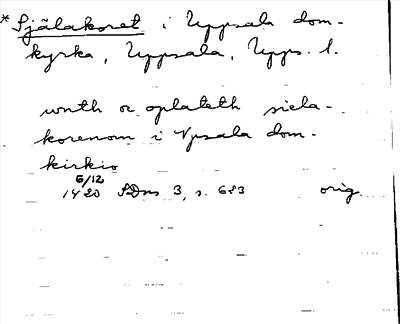 *Själakoret i Uppsala dom-
kyrka, Uppsala, Upps. l.
wnth oc oplateth siela-
korenom i Vpsala dom-
kirkio
6/12
1420 SDns 3, s. 683 orig.